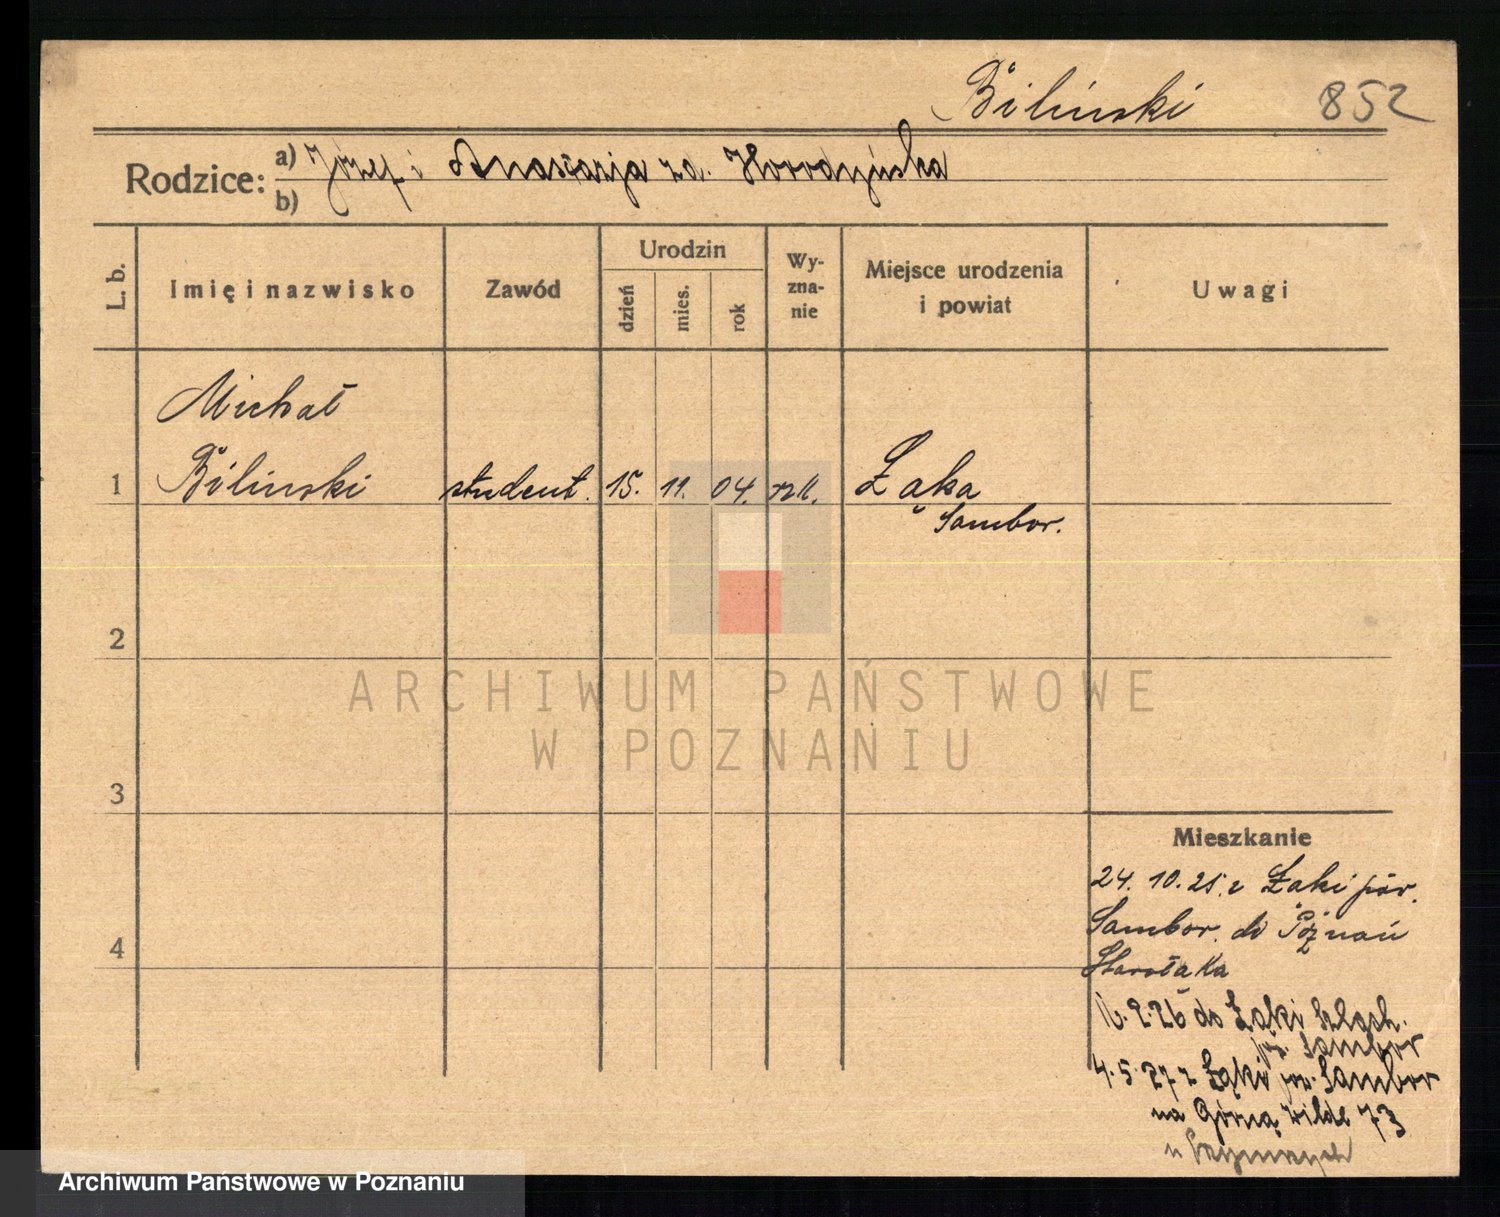 Biliński 852
Rodzice: a) Józef i Anastazja za. Horodyńska
b)
L. b. Imię i nazwisko Zawód Urodzin dzień mies. rok Wy-zna-nie Miejsce urodzenia i powiat Uwagi
Michał
1 Bilinski student. 15. 11. 04. rzk. Łąka
Sambor.
2
ARCHIWUM PAŃSTWOWE
W POZNANIU
3
Mieszkanie
24. 10. 25. z Łąki pow.
Sambor. do Poznań
4
Starołęka
16. 2. 26 do Łąki Szlach.
pow. Sambor
4. 5. 27 z Łąki pow. Sambor
na Górną Wildę 73
u
Archiwum Państwowe w Poznaniu